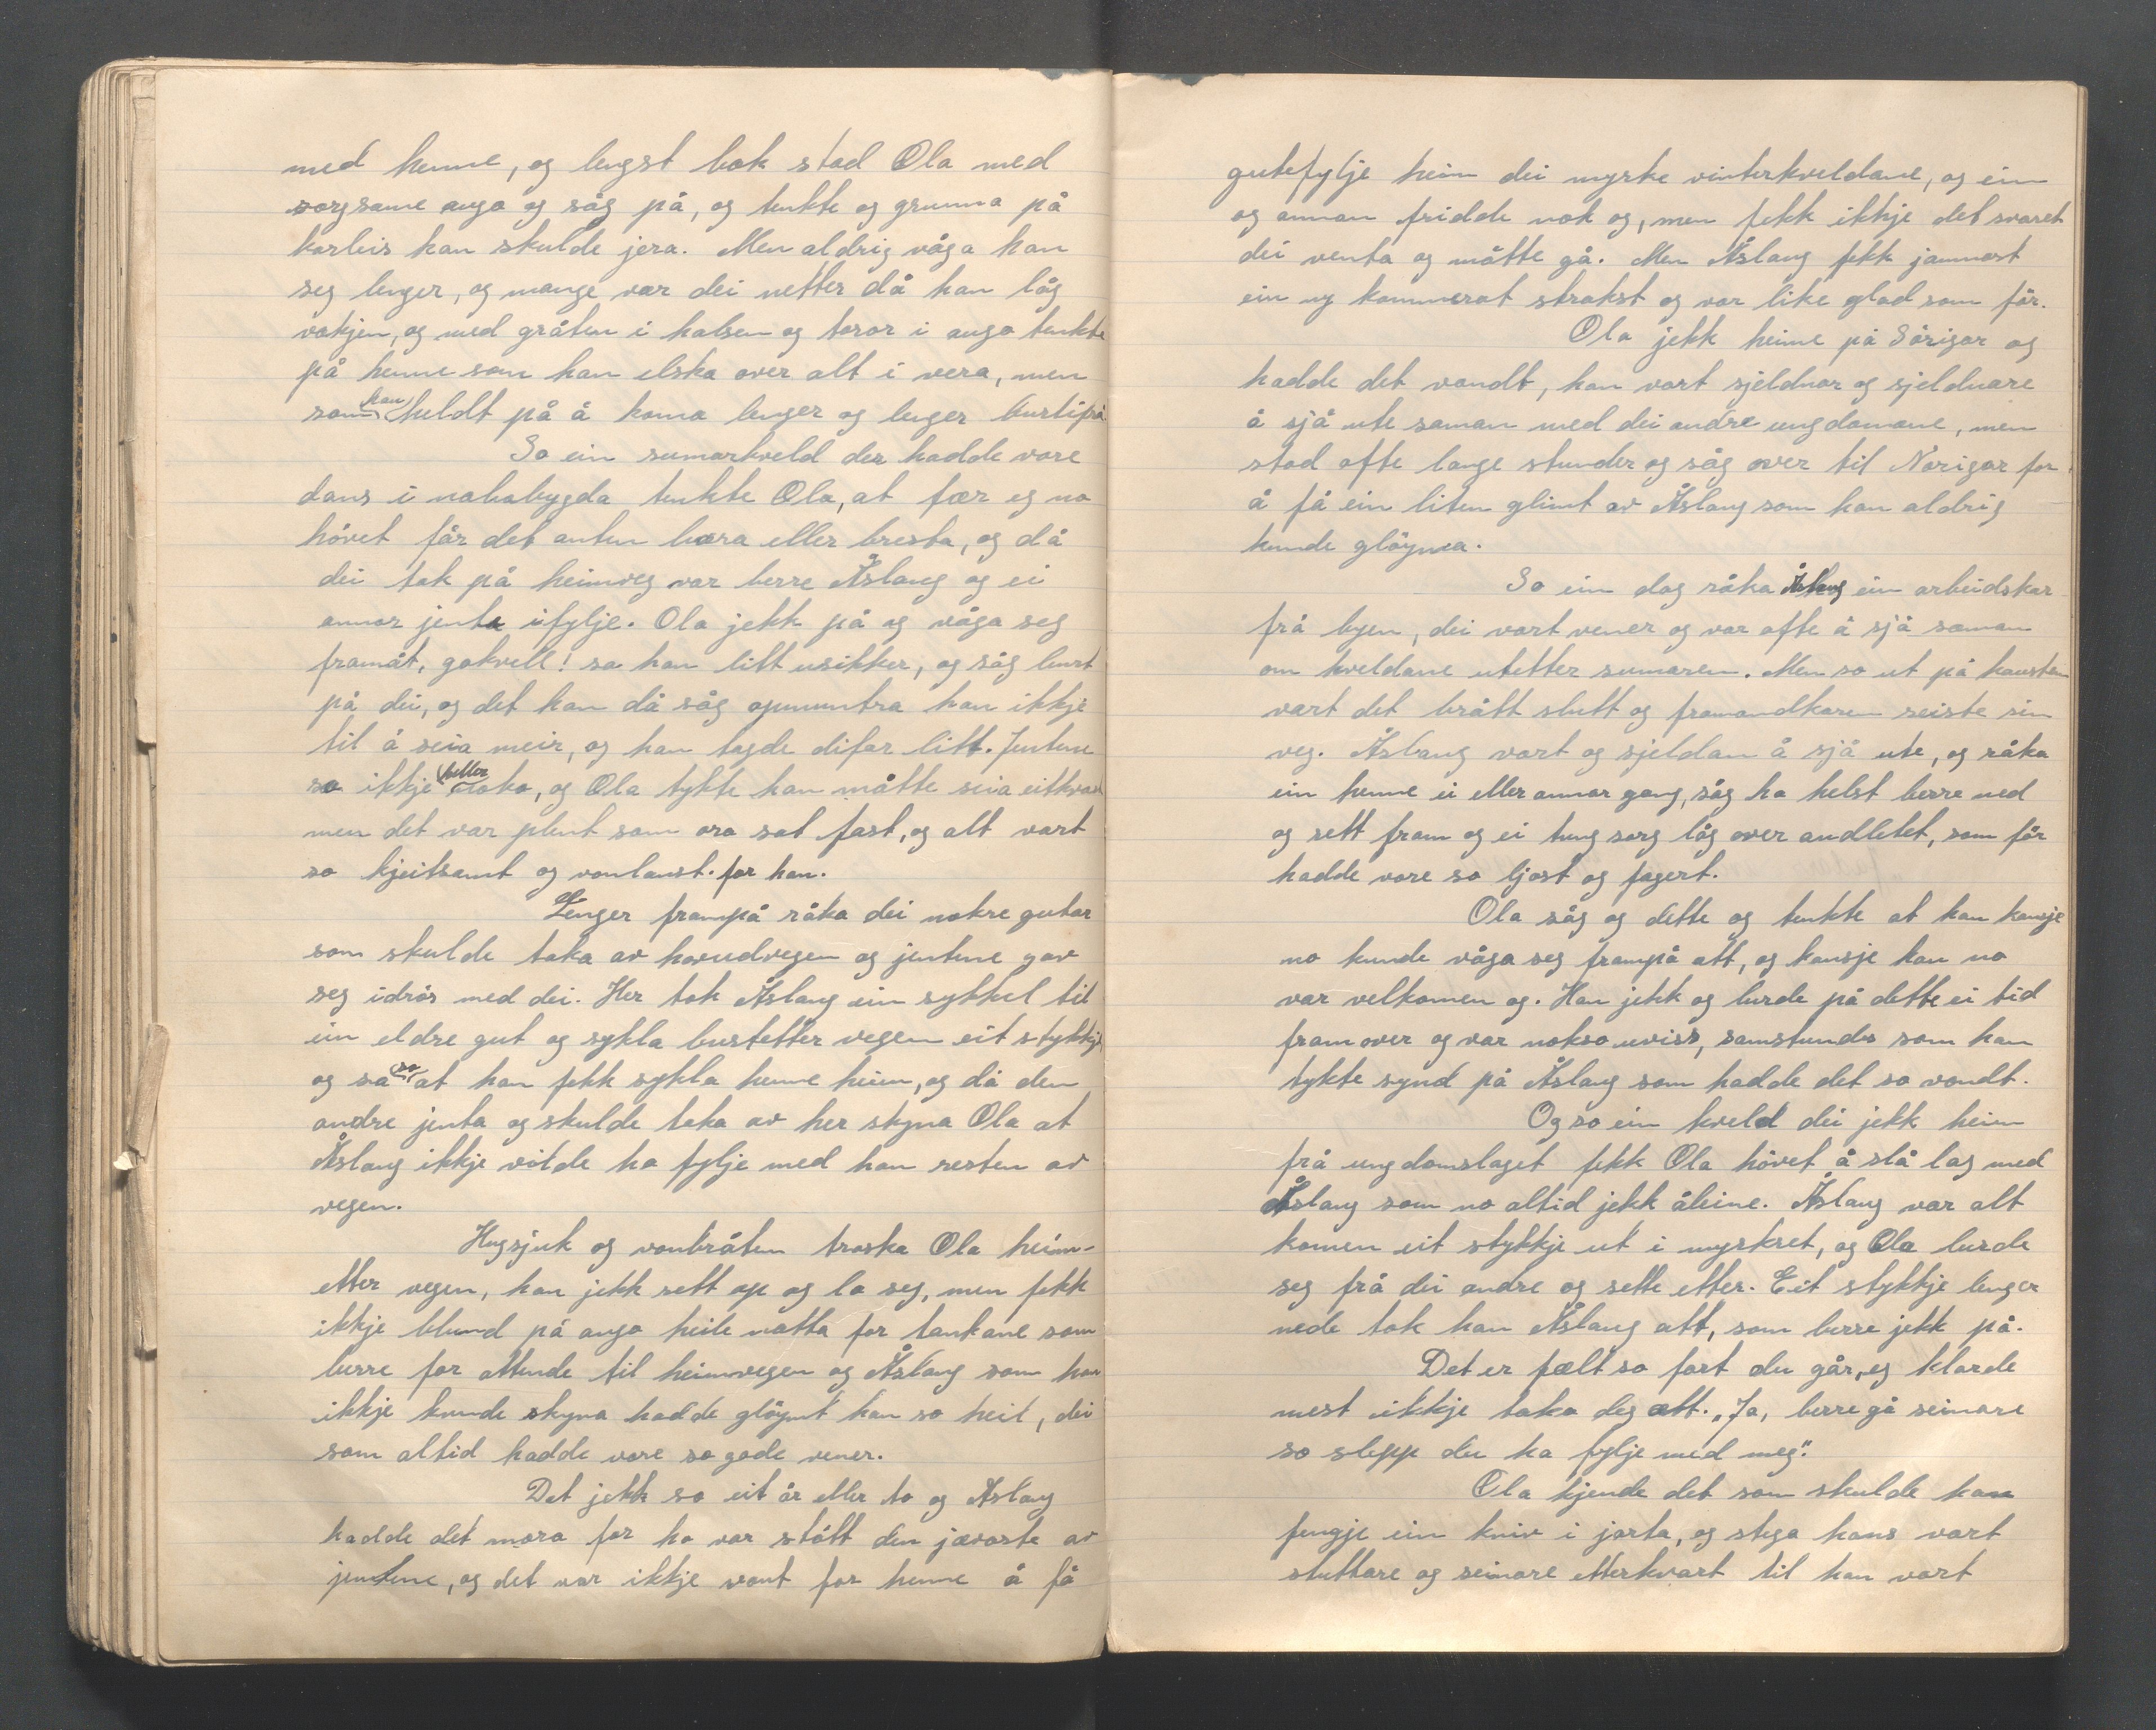 med henne, og lengst bak stod Ola med
sorgsame augo og såg på, og tenkte og grunna på
korleis han skulde jera. Men aldrig våga han
seg lenger, og mange var dei netter då han låg
vakjen, og med gråten i halsen og taror i augo tenkte
på henne som han elska over alt i vera, men
som han heldt på å koma lenger og lenger burtifrå
So ein sumarkveld der hadde vore
dans i nabobygda tenkte Ola, at fær eg no
hövet får det anten bæra eller bresta, og då
dei tok på heimveg var berre Åslaug og ei
annor jenta ifylje. Ola jekk på og våga seg
framåt, gokvell! sa han litt usikker, og såg burt
på dei, og det han då såg opmuntra han ikkje
til å seia meir, og han tagde difor litt. Jentene
sa ikkje heller noko, og Ola tykte han måtte seia eitkvart
men det var plent som ora sat fast, og alt vart
so kjeitsamt og vonlaust. for han.
Lenger frampå råka dei nokre gutar
som skulde taka av hovudvegen og jentene gav
seg idrös med dei. Her tok Åslaug ein sykkel til
ein eldre gut og sykla burtetter vegen eit stykkje
og sa so at han fekk sykla henne heim, og då den
andre jenta og skulde taka av her skyna Ola at
Åslaug ikkje vilde ha fylje med han resten av
vegen.
Hugsjuk og vonbråten traska Ola heim-
etter vegen, han jekk rett op og la seg, men fekk
ikkje blund på augo heile natta for tankane som
berre for attende til heimvegen og Åslaug som han
ikkje kunde skyna hadde glöymt han so heil, dei
som altid hadde vore so gode vener.
Det jekk so eit år eller to og Åslaug
hadde det mora for ho var stött den jævaste av
jentene, og det var ikkje vant for henne å få
gutefylje heim dei myrke vinterkveldane, og ein
og annan fridde nok og, men fekk ikkje det svaret
dei venta og måtte gå. Men Åslaug fekk jamnast
ein ny kammerat strakst og var like glad som för.
Ola jekk heime på Sörigar og
hadde det vondt, han vart sjeldnar og sjeldnare
å sjå ute saman med dei andre ungdomane, men
stod ofte lange stunder og såg over til Norigar for
å få ein liten glimt av Åslaug som han aldrig
kunde glöyma.
So ein dag råka Åslaug ein arbeidskar
frå byen, dei vart vener og var ofte å sjå saman
om kveldane utetter sumaren. Men so ut på hausten
vart det brått slutt og framandkaren reiste sin
veg. Åslaug vart og sjeldan å sjå ute, og råka
ein henne ei eller annor gong, såg ho helst berre ned
og rett fram og ei tung sorg låg over andletet, som för
hadde vore so ljost og fagert.
Ola såg og dette og tenkte at han kansje
no kunde våga seg frampå att, og kansje han no
var velkomen og. Han jekk og lurde på dette ei tid
framover og var nokso uviss, samstundes som han
tykte synd på Åslaug som hadde det so vondt.
Og so ein kveld dei jekk heim
frå ungdomslaget fekk Ola hövet å slå lag med
Åslaug som no altid jekk åleine. Åslaug var alt
komen eit stykkje ut i myrkret, og Ola lurde
seg frå dei andre og sette etter. Eit stykkje lenger
nede tok han Åslaug att, som berre jekk på.
Det er fælt so fort du går, eg klarde
mest ikkje taka deg att. „Ja, berre gå seinare
so slepp du ha fylje med meg."
Ola kjende det som skulde han
fengje ein kniv i jarta, og stega hans vart
stuttare og seinare etterkvart til han vart